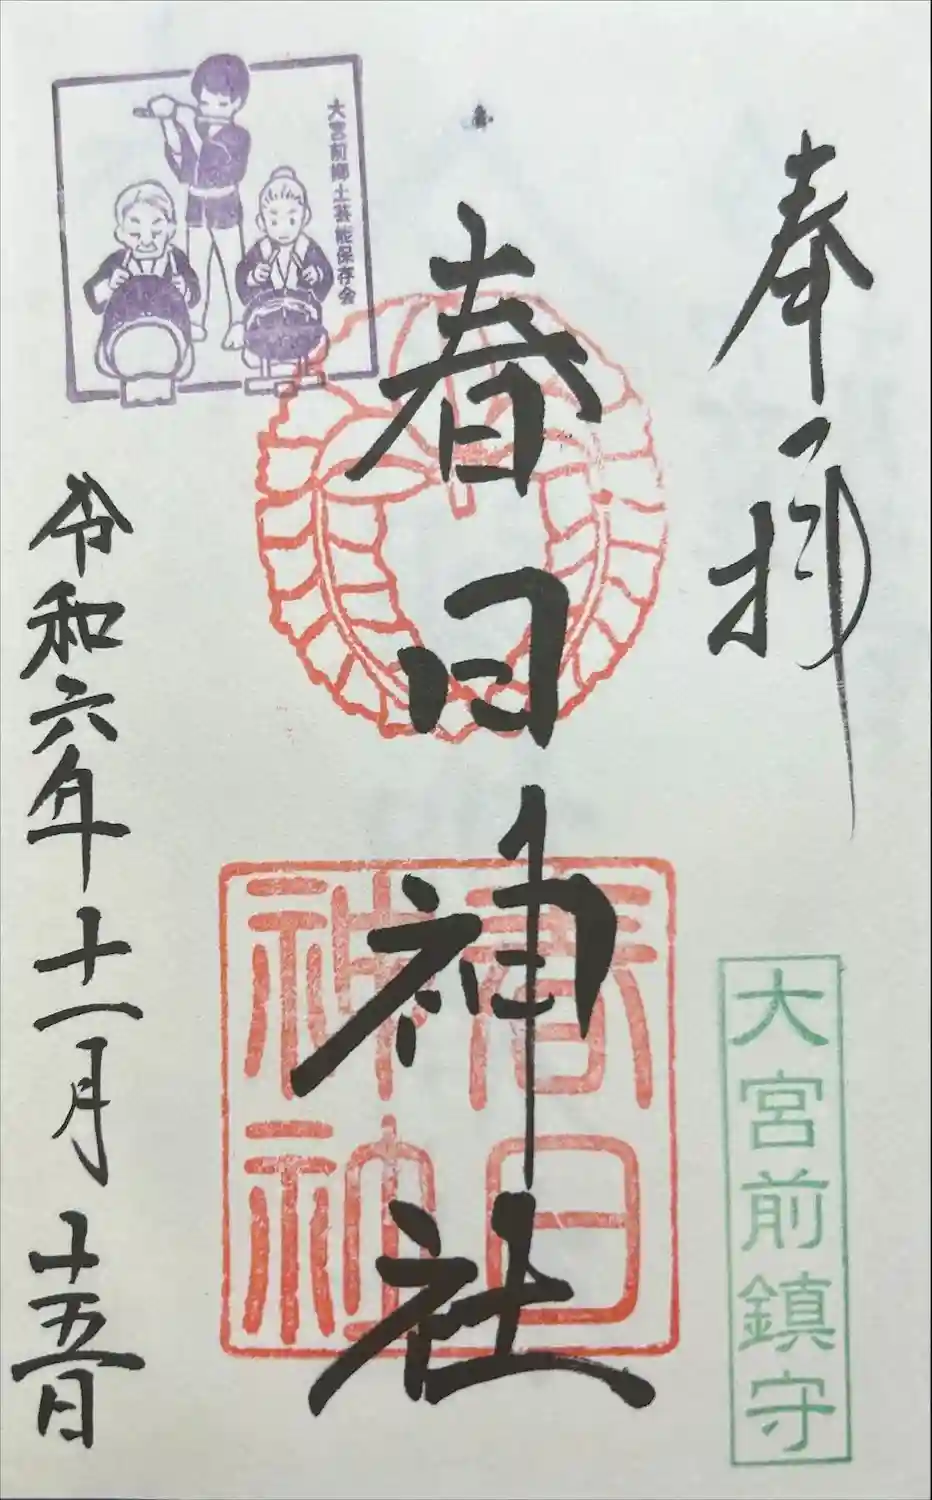 奉拝
大宮前鎮守
春日神社
春日神社
大宮前郷土芸能保存会
令和六年十一月十五日